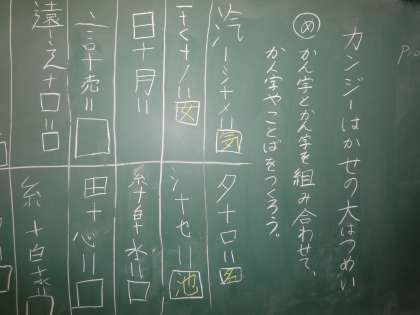 カンジーはかせの大はつめい
め かん字とかん字を組み合わせて、
かん字やことばをつくろう。
汽ーシ+メ=気
夕+口=名
一+く+ノ=女
シ+也=池
日+月=
糸+白+水=
言+売=
田+心=
糸+白+水=